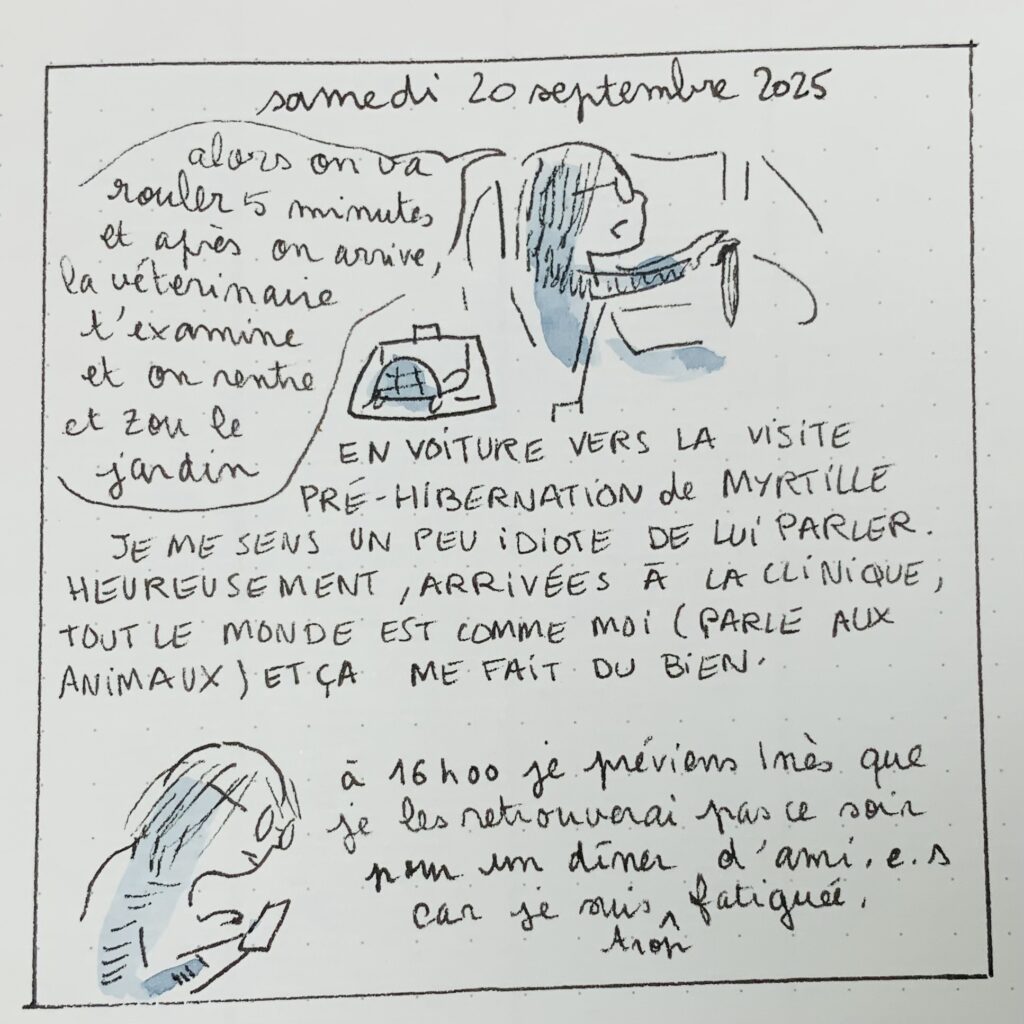 samedi 20 septembre 2025
alors on va
rouler 5 minutes
et après on arrive,
la véterinaire
t'examine
et on rentre
et zou le
jardin
EN VOITURE VERS LA VISITE
PRÉ-HIBERNATION de MYRTILLE
JE ME SENS UN PEU IDIOTE DE LUI PARLER.
HEUREUSEMENT, ARRIVÉES À LA CLINIQUE,
TOUT LE MONDE EST COMME MOI (PARLE AUX
ANIMAUX) ET ÇA ME FAIT DU BIEN.
à 16h00 je préviens Inès que
je les retrouverai pas ce soir
pour un dîner d'ami.e.s
car je suis ^ fatiguée.
trop